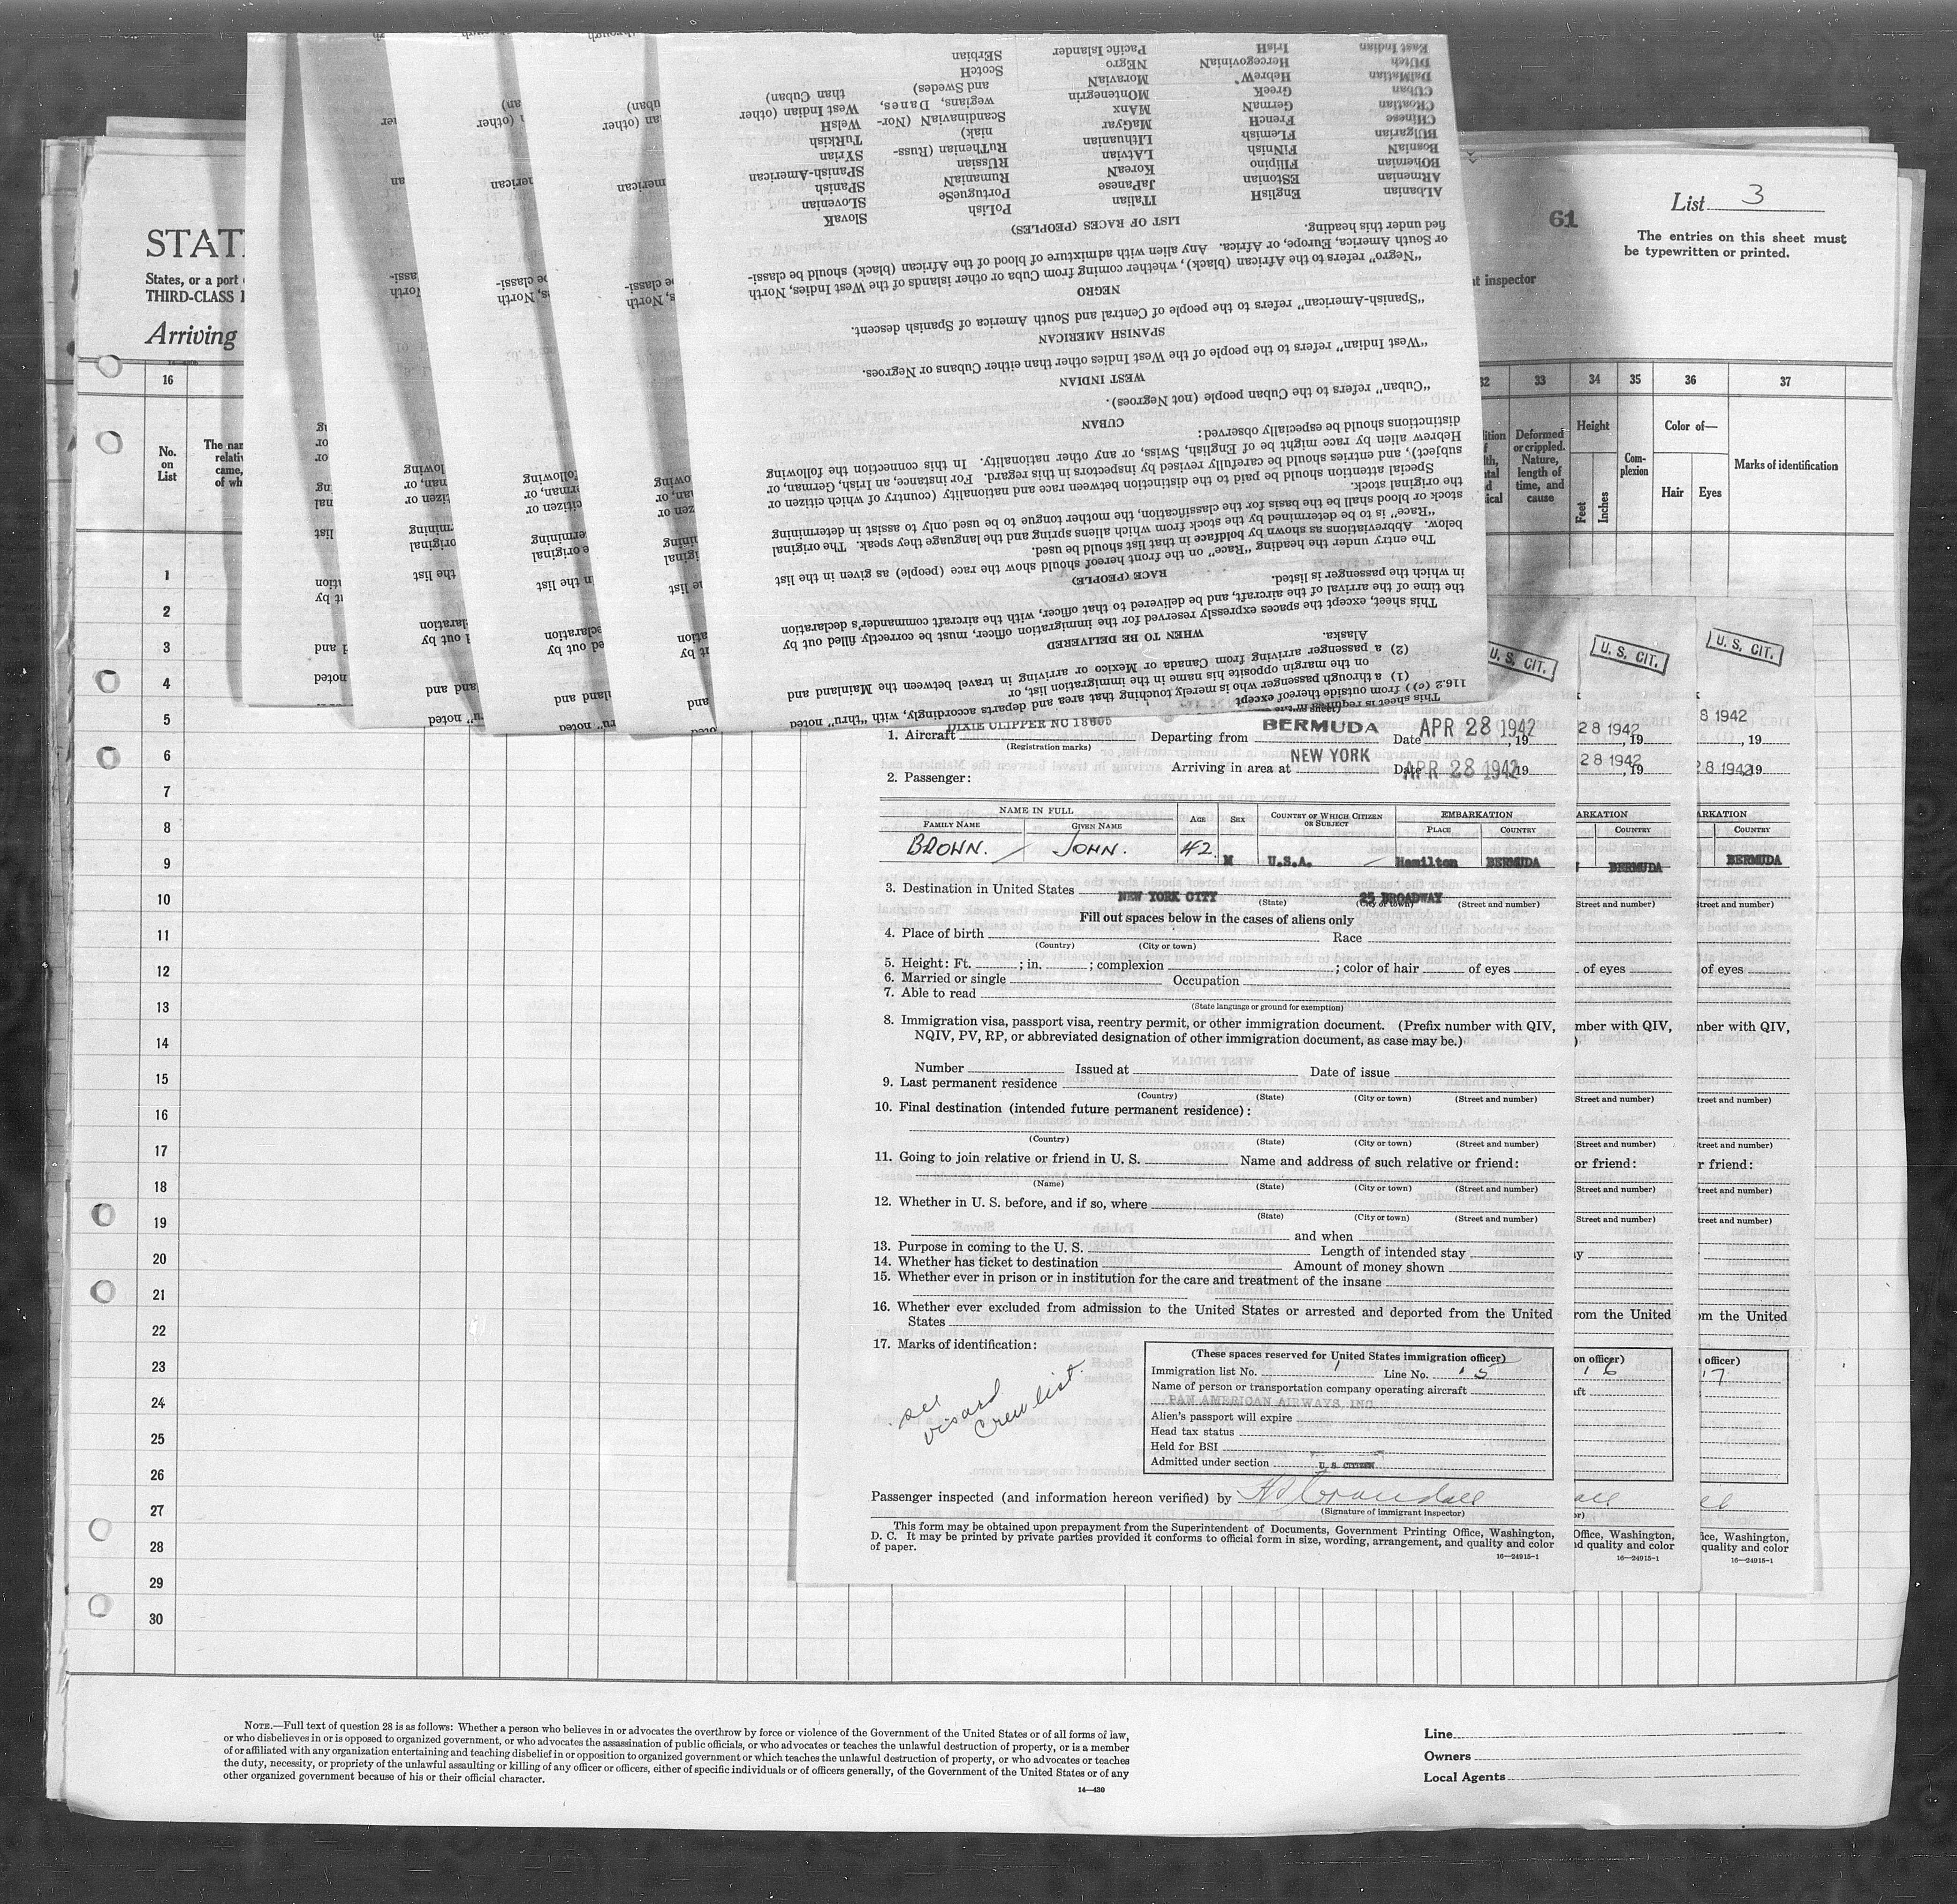 STAT
States, or a port
THIRD-CLASS
Arriving
61
List 3
The entries on this sheet must
be typewritten or printed.
t inspector
16
33
34
35
36
37
No.
on
List
The nam
relativ
came,
of wh
Deformed
or crippled.
Nature,
length of
time, and
cause
Height
Feet
Inches
Com-
plexion
Color of—
Hair
Eyes
Marks of identification
1
2
3
4
5
6
7
8
9
10
11
12
13
14
15
16
17
18
19
20
21
22
23
24
25
26
27
28
29
30
This sheet is required
116.2 (c)) from outside thereof except
(1) a through passenger who is merely touching that area and departs accordingly, with "thru" noted
on the margin opposite his name in the immigration list, or
(2) a passenger arriving from Canada or Mexico or arriving in travel between the Mainland and
Alaska.
WHEN TO BE DELIVERED
This sheet, except the spaces expressly reserved for the immigration officer, must be correctly filled out by
the time of the arrival of the aircraft, and be delivered to that officer, with the aircraft commander's declaration
in which the passenger is listed.
RACE (PEOPLE)
The entry under the heading "Race" on the front hereof should show the race (people) as given in the list
below. Abbreviations as shown by boldface in that list should be used.
"Race" is to be determined by the stock from which aliens spring and the language they speak. The original
stock or blood shall be the basis for the classification, the mother tongue to be used only to assist in determining
the original stock.
Special attention should be paid to the distinction between race and nationality (country of which citizen or
subject), and entries should be carefully revised by inspectors in this regard. For instance, an Irish, German, or
Hebrew alien by race might be of English, Swiss, or any other nationality. In this connection the following
distinctions should be especially observed:
CUBAN
"Cuban" refers to the Cuban people (not Negroes).
WEST INDIAN
"West Indian" refers to the people of the West Indies other than either Cubans or Negroes.
SPANISH AMERICAN
"Spanish-American" refers to the people of Central and South America of Spanish descent.
NEGRO
"Negro" refers to the African (black), whether coming from Cuba or other islands of the West Indies, North
or South America, Europe, or Africa. Any alien with admixture of blood of the African (black) should be classi-
fied under this heading.
LIST OF RACES (PEOPLES)
ALbanian EnglisH ITalian PoLish SlovaK
ARmenian EStonian JaPanese PortugueSe SLOvenian
BOhemian FIlipino KoreaN RumaniaN SPanish
BosniaN FiNnisH LAtvian RUSsian SPanish-American
BUlgarian FLemish LIthuanian RuThenian (Russ- SYrian
CHinese FrencH MaGyar niak) TuRkish
CRoatian GermaN MAnx ScandinaviaN (Nor- WelsH
CUban GreeK MOntenegrin wegians, Danes, West Indian (other
DalMatian HebreW MoraviaN and Swedes) than Cuban)
DUtch HercegoviniaN NEgro ScotcH
East Indian IrisH Pacific Islander SErbian
1. Aircraft DIXIE CLIPPER NC 18605 Departing from BERMUDA Date APR 28 1942, 19
(Registration marks)
Arriving in area at NEW YORK Date APR 28 1942 19
2. Passenger:
NAME IN FULL
FAMILY NAME GIVEN NAME AGE SEX COUNTRY OF WHICH CITIZEN OR SUBJECT EMBARKATION
PLACE COUNTRY
BROWN. JOHN. 42 M U.S.A. Hamilton BERMUDA
3. Destination in United States NEW YORK CITY 25 BROADWAY
(State) (City or town) (Street and number)
Fill out spaces below in the cases of aliens only
4. Place of birth Race
(Country) (City or town)
5. Height: Ft. ; in. ; complexion ; color of hair of eyes
6. Married or single Occupation
7. Able to read
(State language or ground for exemption)
8. Immigration visa, passport visa, reentry permit, or other immigration document. (Prefix number with QIV,
NQIV, PV, RP, or abbreviated designation of other immigration document, as case may be.)
Number Issued at Date of issue
9. Last permanent residence
(Country) (State) (City or town) (Street and number)
10. Final destination (intended future permanent residence):
(Country) (State) (City or town) (Street and number)
11. Going to join relative or friend in U. S. Name and address of such relative or friend:
(Name) (State) (City or town) (Street and number)
12. Whether in U. S. before, and if so, where
(State) (City or town) (Street and number)
and when
13. Purpose in coming to the U. S. Length of intended stay
14. Whether has ticket to destination Amount of money shown
15. Whether ever in prison or in institution for the care and treatment of the insane
16. Whether ever excluded from admission to the United States or arrested and deported from the United
States
17. Marks of identification:
see
visard
crew list.
(These spaces reserved for United States immigration officer)
Immigration list No. 1 Line No. 5
Name of person or transportation company operating aircraft
PAN AMERICAN AIRWAYS, INC.
Alien's passport will expire
Head tax status
Held for BSI
Admitted under section U. S. CITIZEN
Passenger inspected (and information hereon verified) by
(Signature of immigrant inspector)
This form may be obtained upon prepayment from the Superintendent of Documents, Government Printing Office, Washington,
D. C. It may be printed by private parties provided it conforms to official form in size, wording, arrangement, and quality and color
of paper.
16—24915-1
U. S. CIT.
U. S. CIT.
U. S. CIT.
28 1942
, 19
28 1942
, 19
ARKATION
COUNTRY
BERMUDA
(Street and number)
of eyes
mber with QIV,
or friend:
rom the United
on officer)
1 6
Office, Washington,
d quality and color
16—24915-1
8 1942
, 19
28 1942 19
ARKATION
COUNTRY
BERMUDA
of eyes
mber with QIV,
r friend:
om the United
officer)
17
ice, Washington,
quality and color
16—24915-1
NOTE.—Full text of question 28 is as follows: Whether a person who believes in or advocates the overthrow by force or violence of the Government of the United States or of all forms of law,
or who disbelieves in or is opposed to organized government, or who advocates the assassination of public officials, or who advocates or teaches the unlawful destruction of property, or is a member
of or affiliated with any organization entertaining and teaching disbelief in or opposition to organized government or which teaches the unlawful destruction of property, or who advocates or teaches
the duty, necessity, or propriety of the unlawful assaulting or killing of any officer or officers, either of specific individuals or of officers generally, of the Government of the United States or of any
other organized government because of his or their official character.
14—430
Line
Owners
Local Agents